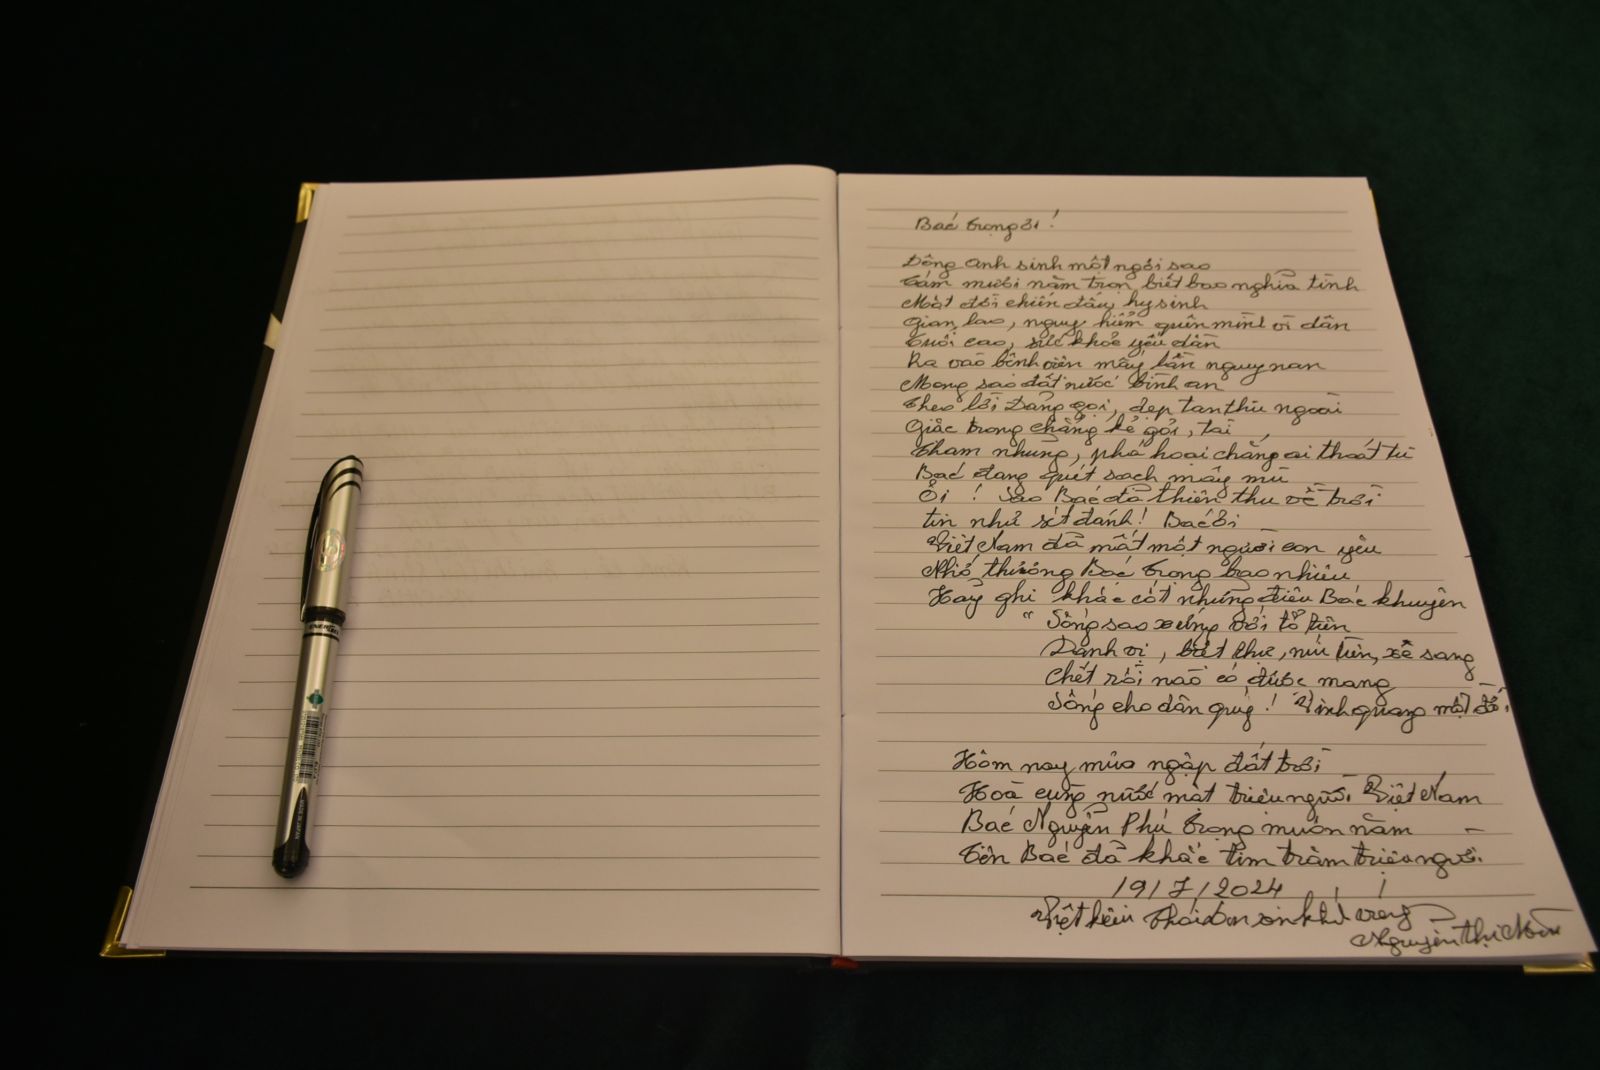 Bác Trọng ơi!
Đông Anh sinh một ngôi sao
Tám mươi năm tròn biết bao nghĩa tình
Một đời chiến đấu, hy sinh
Gian lao, nguy hiểm quên mình vì dân
Tuổi cao, sức khỏe yếu dần
Ra vào bệnh viện mấy lần nguy nan
Mong sao đất nước bình an
Theo lời Đảng gọi, dẹp tan thù ngoài
Giặc trong chẳng kể gái, tai
Tham nhũng, phá hoại chẳng ai thoát tù
Bác đang quét sạch mây mù
Ôi! Sao Bác đã thiên thu về trời
Tin như sét đánh! Bác ơi
Việt Nam đã mất một người con yêu
Nhớ, thương Bác Trọng bao nhiêu
Hãy ghi khắc cốt những điều Bác khuyên
"Sống sao xứng với tổ tiên
Danh vị, biệt thự, núi tiền, xế sang
Chết rồi nào có được mang
Sống cho dân quý! Vinh quang một đời
Hôm nay mưa ngập đất trời
Hoà cùng nước mắt triệu người Việt Nam
Bác Nguyễn Phú Trọng muôn năm
Tên Bác đã khắc tim trăm triệu người.
19/7/2024
Việt kiều Thái Lan xin kính viếng
Nguyễn Thị
ENERGEL